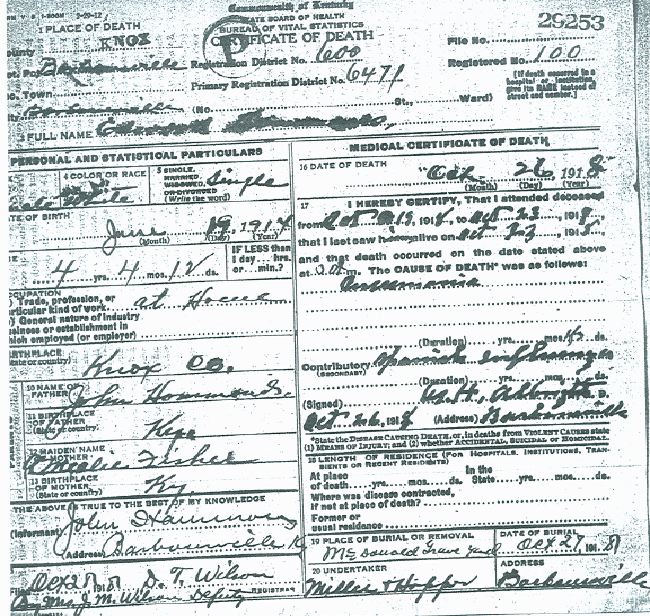 Commonwealth of Kentucky
STATE BOARD OF HEALTH
BUREAU OF VITAL STATISTICS
CERTIFICATE OF DEATH
29253
1 PLACE OF DEATH
KNOX
File No.
Registration District No. 600
Registered No. 100
Barbourville
Primary Registration District No. 6471
[If death occurred in a hospital or institution give its NAME instead of street and number.]
Town
Barbourville (No. St., Ward)
FULL NAME
PERSONAL AND STATISTICAL PARTICULARS
4 COLOR OR RACE
White
5 SINGLE, MARRIED, WIDOWED, OR DIVORCED (Write the word)
Single
DATE OF BIRTH
June 19, 1914
(Month) (Day) (Year)
4 yrs. 4 mos. 12 ds.
IF LESS than 1 day... hrs. or... min.?
OCCUPATION
Trade, profession, or particular kind of work at Home
General nature of industry
business or establishment in
which employed (or employer)
BIRTHPLACE
(State or country) Knox Co.
10 NAME OF FATHER John Hammonds
11 BIRTHPLACE OF FATHER (State or country) Ky
12 MAIDEN NAME OF MOTHER Fisher
13 BIRTHPLACE OF MOTHER (State or country) Ky
THE ABOVE IS TRUE TO THE BEST OF MY KNOWLEDGE
(Informant) John Hammons
(Address) Barbourville K
Filed Oct 28 1918 D. T. Wilson
REGISTRAR
By J. M. Wilson Deputy
MEDICAL CERTIFICATE OF DEATH
16 DATE OF DEATH
Oct 26 1918
(Month) (Day) (Year)
17 I HEREBY CERTIFY, That I attended deceased
from Oct 19, 1918, to Oct 23, 1918,
that I last saw h alive on Oct 23, 1918,
and that death occurred on the date stated above
at m. The CAUSE OF DEATH* was as follows:
Pneumonia
(Duration) yrs. mos. ds.
Contributory Spanish influenza
(SECONDARY)
(Duration) yrs. mos. ds.
(Signed) Albright M.D.
Oct 26, 1918 (Address) Barbourville
*State the DISEASE CAUSING DEATH, or, in deaths from VIOLENT CAUSES state
(1) MEANS OF INJURY; and (2) whether ACCIDENTAL, SUICIDAL or HOMICIDAL.
18 LENGTH OF RESIDENCE (FOR HOSPITALS, INSTITUTIONS, TRANSIENTS OR RECENT RESIDENTS)
At place of death yrs. mos. ds. In the State yrs. mos. ds.
Where was disease contracted,
if not at place of death?
Former or
usual residence
19 PLACE OF BURIAL OR REMOVAL
McDonald Grave Yard
DATE OF BURIAL
Oct 27, 1918
20 UNDERTAKER
Miller & Hopper
ADDRESS
Barbourville